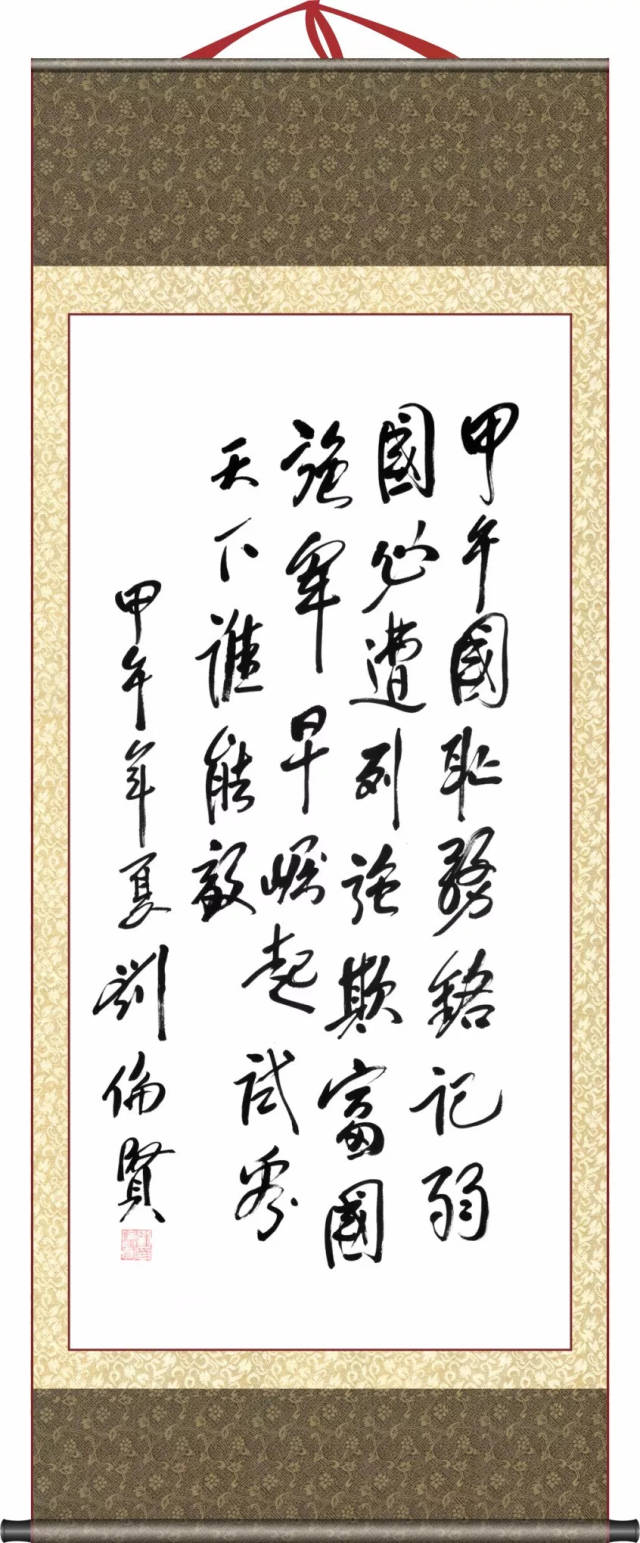 甲午國恥務銘記弱
國必遭列強欺富國
強軍早崛起試看
天下誰能敵
甲午年夏劉倫賢